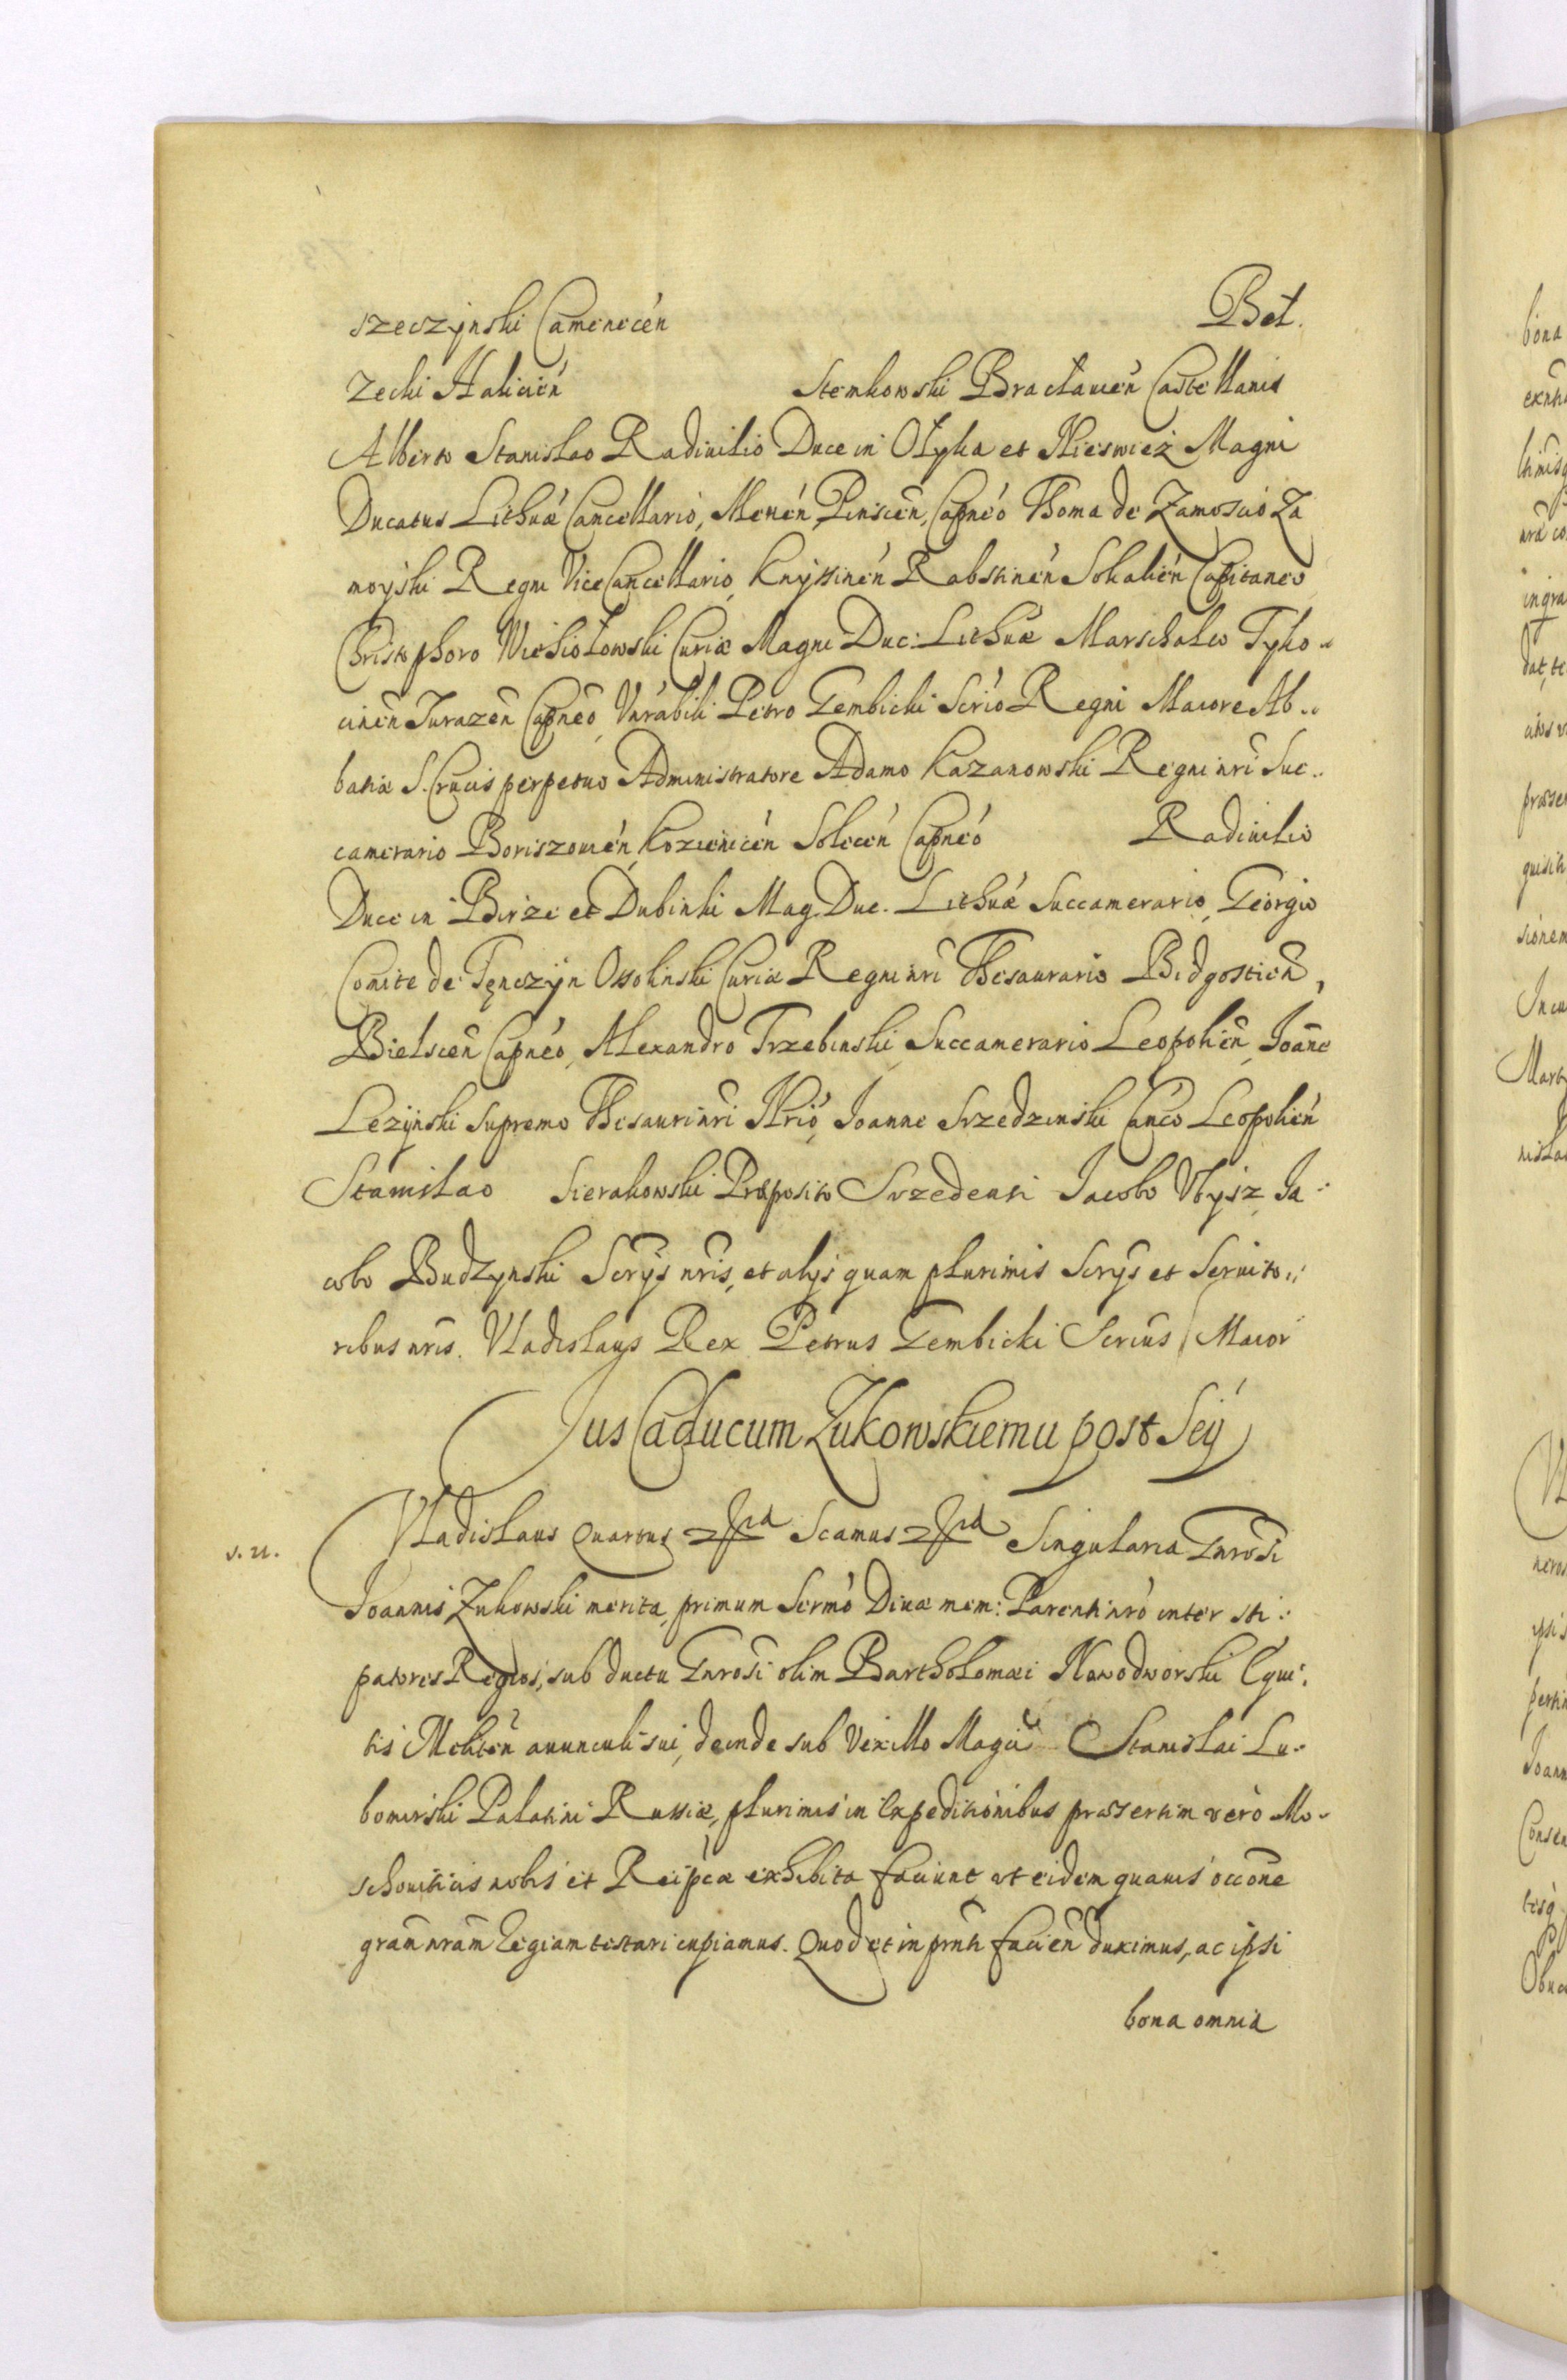 szeczÿnski Camenecén Beł.
zecki Halicién Stemkowski Bracłauién Castellanis
Alberto Stanislao Radiuilio Duce in Ołyka et Nieswież Magni
Ducatus Lithuã Cancellario, Meuén Pinscen, Capnéo Thoma de Zamoscio Za
moÿski Regni ViceCancellario, Knÿssinén Rabstinén Sokalién Capitaneo
Christophoro Wiesiołowski Curiæ Magni Duc: Lithuæ Marschalco Tyko„
cinen̄ Jurazen̄ Capnéo, Vnrãbili Petro Gembicki Scrió Regni Maiore Ab„
batiæ S. Crucis perpetuo Administratore Adamo Kazanowski Regni nr̄i Suc„
camerario Boriszouién, Kozienicén Solecén Capnéó Radiuilio
Duce in Birze et Dubinki Mag. Duc. Lithuã Succamerario, Georgio
Comite de Tęnczÿn Ossolinski Curiæ Regni nr̄i Thesaurario Bidgostien̄,
Bielscen̄ Capnéo, Alexandro Trzebinski Succamerario Leopolien̄, Joan̄e
Lezÿnski supremo Thesauri nr̄i Nrió, Joanne Srzedzinski Canco Leopolién
Stanislao Sierakowski Præposito Srzedensi Jacobo Vbysz, Ja„
cobo Budzynski Scrijs nr̄is, et alijs quam plurimis Scrijs et Seruito„
ribus nr̄is. Vladislaus Rex Petrus Gembicki Scrius Maior
Jus Caducum Zukowskiemu post Seÿ
s. u.
Vladislaus Quartus Scamus Singularia Gnrosi
Joannis Zukowski merita, primum Sermó Diuæ mem: Parenti nró inter sti„
patores Regios, sub ductu Gnrosi olim Bartholomæi Nowodworski Equi„
tis Meliten̄ auunculi sui, deinde sub Vexillo Magci Stanislai Lu„
bomirski Palatini Russiæ, plurimis in Expeditionibus præsertim verò Mo„
schouiticis nobis et Reipcæ exhibita faciunt, vt eidem quauis occ̄one
gram̄ nram̄ Regiam testari cupiamus. Quod et in prn̄ti facien̄ duximus, ac ipsi
bona omnia